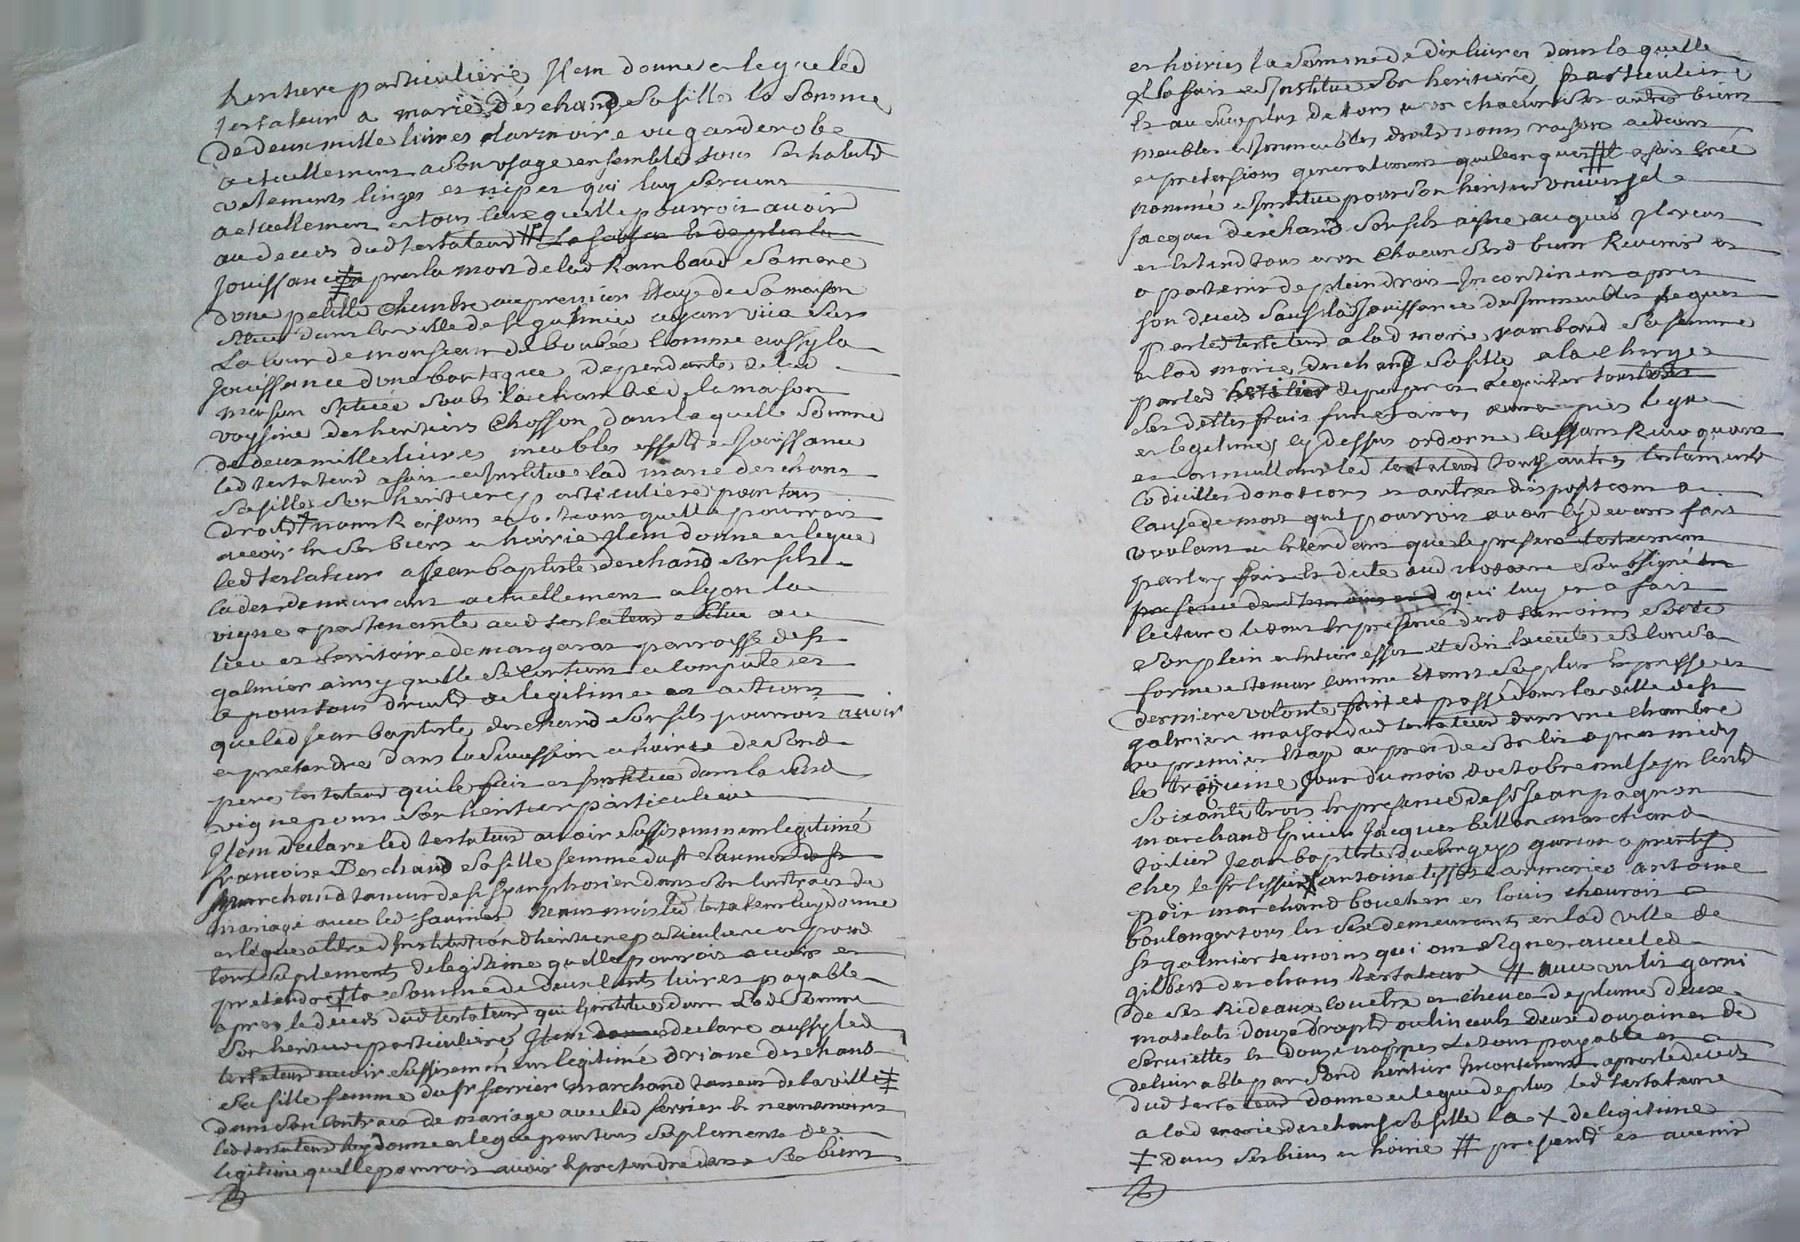 heritiere particuliere, Item donne et legue led
testateur a marie deschand sa fille la somme
de deux mille livres larmoire ou garderobe
actuellement a son usage ensemble tous ses habits
vetements linges et nipes qui luy servent
actuellement et tous ceux quelle pourroit avoir
au deces dud testateur # de plus la
Jouissance ‡ pres la mort de lad Rambaud sa mere
dune petitte chambre au premier Etage de sa maison
situee dans la ville de st galmier ayant vue sur
La Cour de monsieur de boubée Comme aussy la
Jouissance dune boutique dependante de lad
maison située soubs la chambre de la maison
voysine des heritiers Chosson dans laquelle somme
de deux mille livres meubles effets et Jouissance
led testateur a fait et Institue lad marie deschand
sa fille son heritiere particuliere pour tous
droits ‡ noms Raisons et actions quelle pourroit
avoir En ses biens et hoirie Item donne et legue
led testateur a Jean baptiste deschand son fils
cadet demeurant actuellement a lyon la
vigne apartenante aud testateur située au
lieu et territoire de margaras parroisse de st
galmier ainsy quelle se contient et compute et
ce pour tous droits de legitime et actions
que led Jean baptiste deschand son fils pourroit avoir
et pretendre dans la succession et hoirie de sond
pere testateur qui le fait et Institue dans la susd
vigne pour son heritier particulier
Item declare led testateur avoir suffisemment legitimé
francoise Deschand sa fille femme du sr saumon
marchand taneur de st symphorien dans son Contrait de
mariage avec led saumon Neanmoins led testateur luy donne
et legue a titre dInstitution dheritiere particuliere et pour
tous suplements de legitime quelle pourroit avoir et
pretendre ‡ la somme de deux cents livres payable
apres le deces dud testateur qui Linstitue dans lad somme
son heritiere particuliere, Item declare aussy led
testateur avoir suffisemment legitimé oriane deschand
sa fille femme du sr ferrier marchand taneur de la ville ‡
dans son Contrait de mariage avec led ferrier et neanmoins
led testateur luy donne et legue pour tous suplements de
legitime quelle pourroit avoir et pretendre dans ses biens
et hoiries la somme de dix livres dans laquelle
il la fait et Institue son heritiere particuliere
Et au surplus de tous et un chacun ses autres biens
meubles et Immeubles droits noms raisons actions
et pretensions generalement quelconques # il a fait créé
nommé et Institue pour son heritier universel
Jacques deschand son fils aisne auquel Il veut
et Entend tous et un chacun sesd biens Revenir et
apartenir de plein droit Incontinent apres
son deces sauf la Jouissance des Immeubles legues
par led testateur a lad marie rambaud sa femme
a lad marie deschand sa fille a la charge
par led heritier de payer et acquitter tous
ses dettes frais funeraires œuvres pies legue
et legitimes cy dessus ordonne cassant Revoquant
et annullant led testateur tous autres testaments
Codicilles donations et autres dispositions a
cause de mort quil pourroit avoir cy devant fait
voulant et Entendant que le present testament
par luy fait et dicte aud notaire soubsigné
presence desd temoins qui luy en a fait
lecture le tout En presence desd temoins sorte
son plein et Entier effet et soit Executé selon sa
forme et teneur comme Etant sa plus Expresse et
derniere volonté fait et passé dans la ville de st
galmier maison dud testateur dans une chambre
au premier Etage aupres de son lit apres midy
le treizieme Jour du mois doctobre mil sept cents
soixante trois En presence de sr Jean pagnon
marchand Epicier Jacques bellon marchand
toilier Jean baptiste garcon
ches le sr lissier antoine armorier antoine
poix marchand boucher et louis chouroit
boulanger tous les six demeurants en lad ville de
st galmier temoins qui ont signes avec led
gilbert deschans testateur # avec un lit garni
de ses Rideaux Couette et chevet de plume deux
matelats douze draps ou linceuls deux douzaines de
serviettes et douze nappes Le tout payable et
delivrable par sond heritier Incontinent apres le deces
dud testateur donne et legue de plus led testateur
a lad marie deschans sa fille la x de legitime
‡ dans ses biens et hoirie # presents et avenir